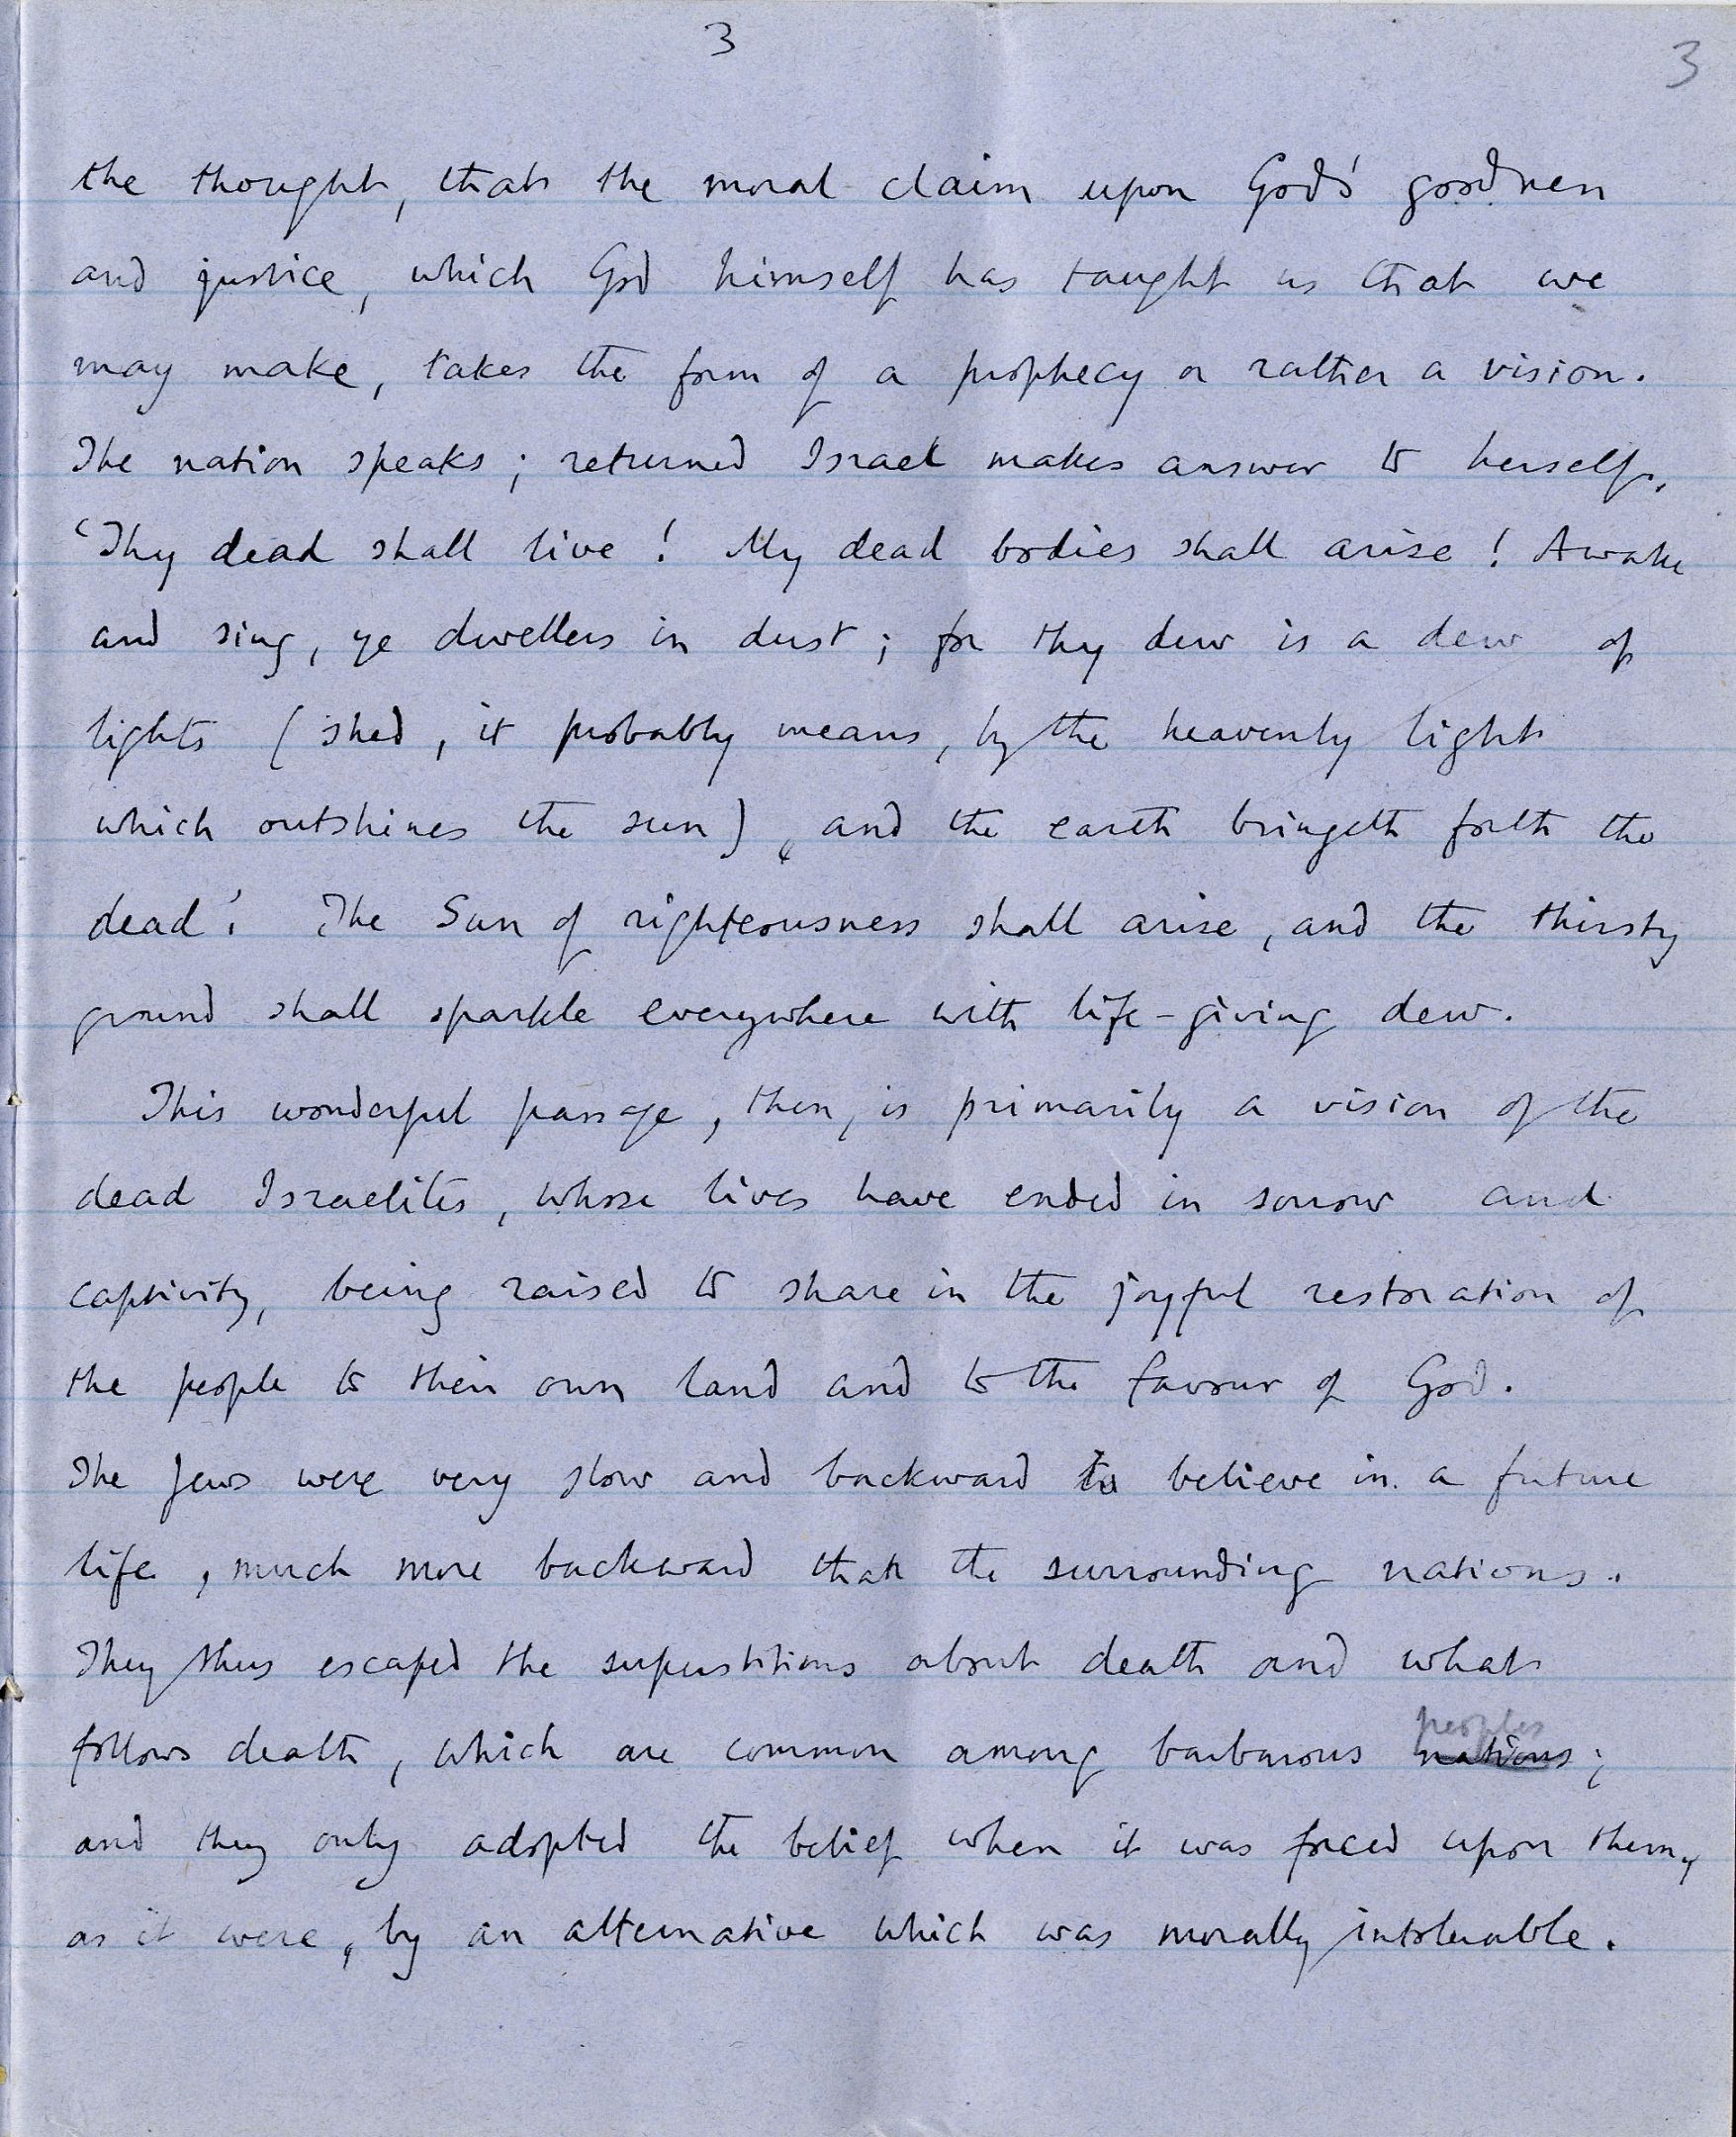 3
3
the thought, that the moral claim upon God's goodness
and justice, which God himself has taught us that we
may make, takes the form of a prophecy or rather a vision.
The nation speaks; returned Israel makes answer to herself,
'Thy dead shall live! My dead bodies shall arise! Awake
and sing, ye dwellers in dust; for thy dew is a dew of
lights (shed, it probably means, by the heavenly light
which outshines the sun), and the earth bringeth forth the
dead'. The Sun of righteousness shall arise, and the thirsty
ground shall sparkle everywhere with life-giving dew.
This wonderful passage, then, is primarily a vision of the
dead Israelites, whose lives have ended in sorrow and
captivity, being raised to share in the joyful restoration of
the people to their own land and to the favour of God.
The Jews were very slow and backward to believe in a future
life, much more backward than the surrounding nations.
They thus escaped the superstitions about death and what
peoples
follows death, which are common among barbarous nations;
and they only adopted the belief when it was forced upon them,
as it were, by an alternative which was morally intolerable.